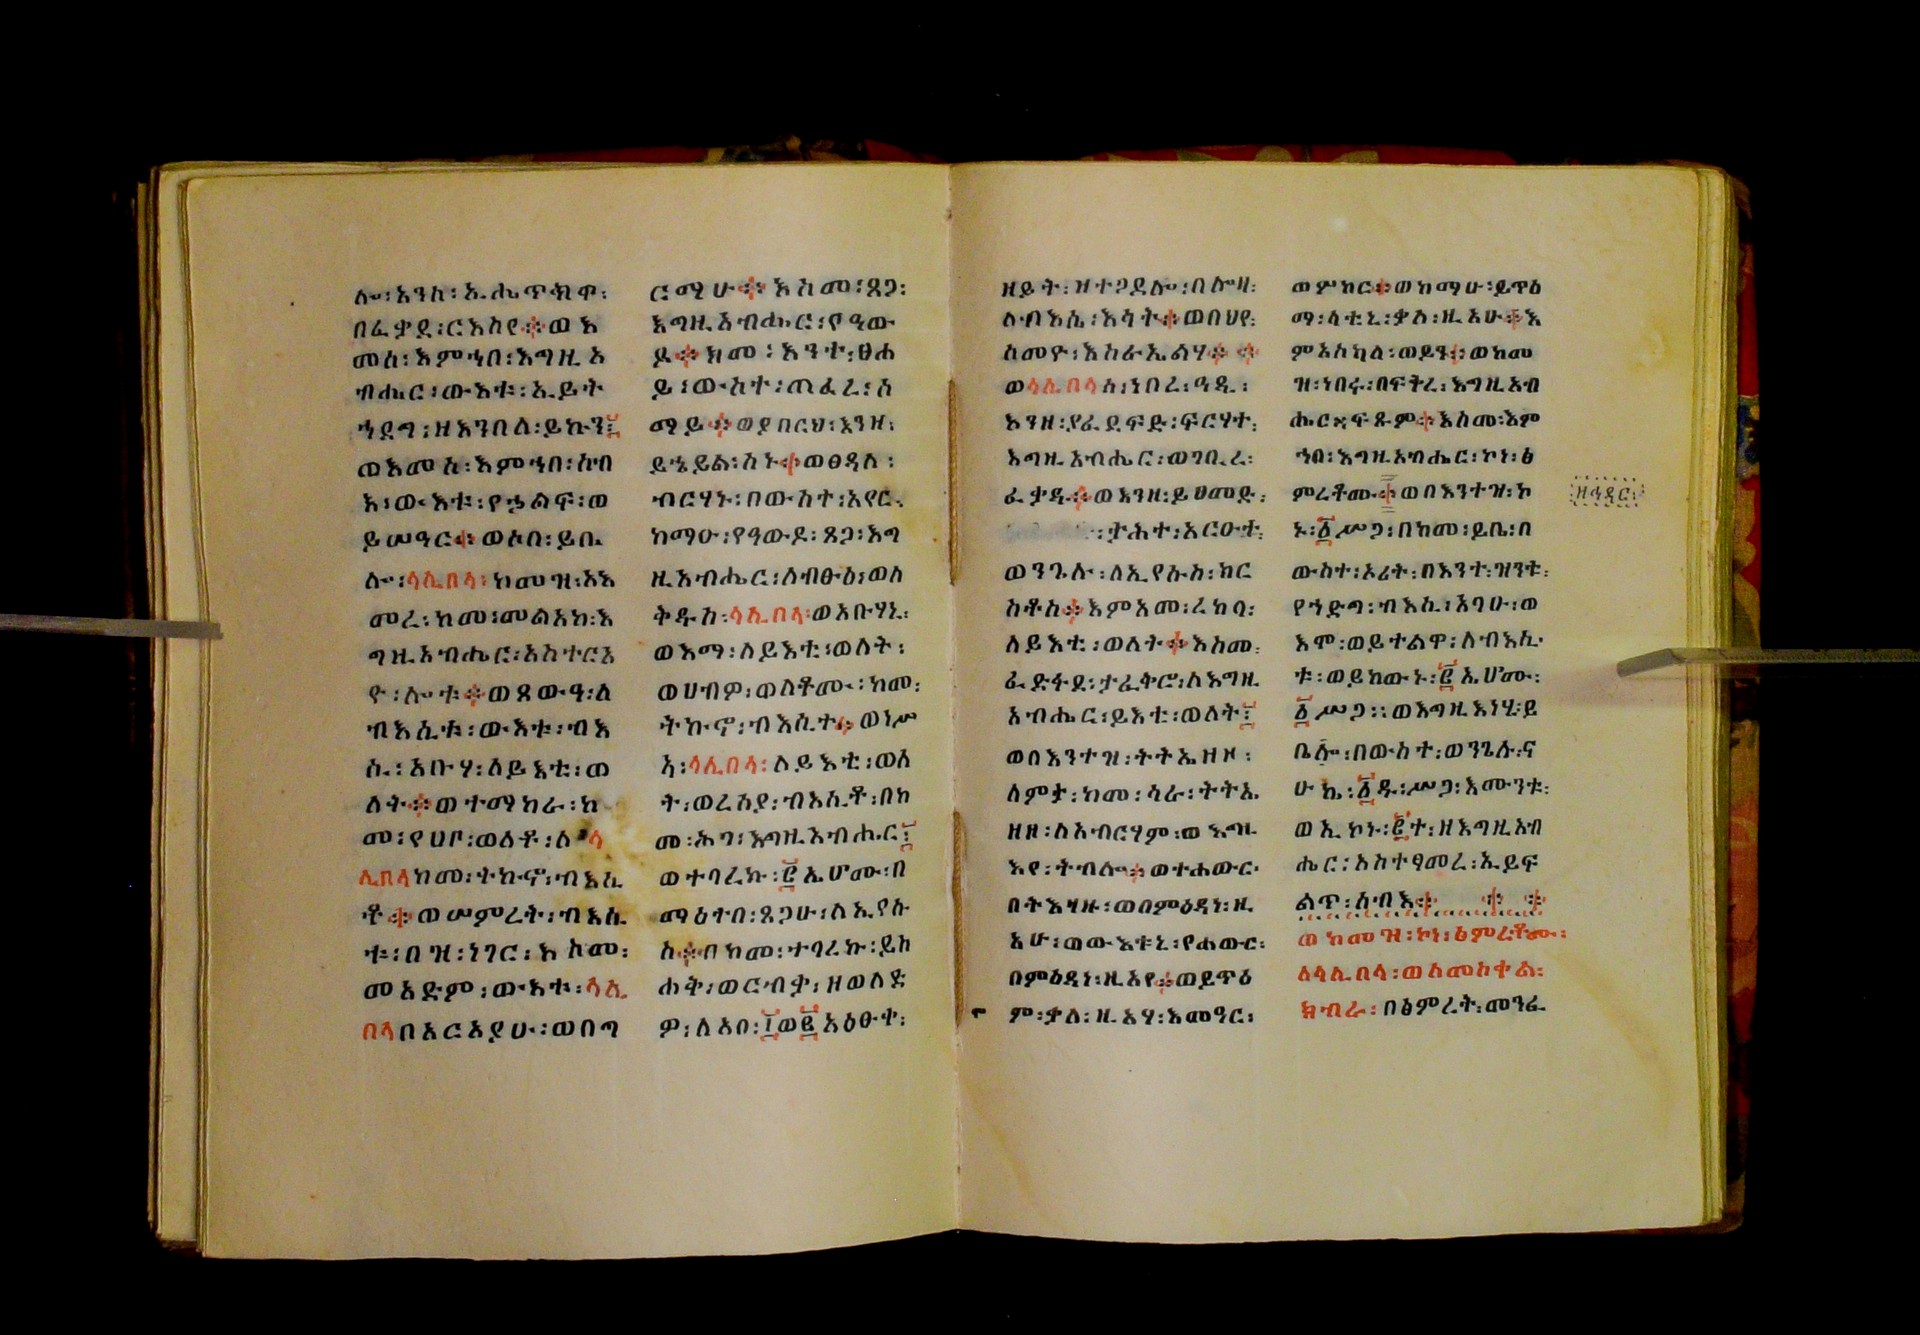 ሎ፡አንከ፡ኢሔጥክዋ፡
በፈቃደ፡ርእስየ፨ወእ
መሰ፡እምኀበ፡እግዚአ
ብሔር፡ውእቱ፡ኢይት
ኀደግ፡ዘእንበለ፡ይኩን፤
ወእመሰ፡እምኀበ፡ሰብ
እ፡ውእቱ፡የኃልፍ፡ወ
ይሠዓር፨ወሶበ፡ይቤ
ሎ፡ላሊበላ፡ከመዝ፡አእ
መረ፡ከመ፡መልአከ፡እ
ግዚአብሔር፡አስተርአ
ዮ፡ሎቱ፨ወጸውዓ፡ለ
ብእሲቱ፡ውእቱ፡ብእ
ሲ፡አቡሃ፡ለይእቲ፡ወ
ለት፨ወተማከራ፡ከ
መ፡የሀቦ፡ወለቶ፡ለላ
ሊበላከመ፡ትኩኖ፡ብእሲ
ቶ፨ወሠምረት፡ብእሲ
ቱ፡በዝ፡ነገር፡እስመ፡
መአድም፡ውእቱ፡ላሊ
በላበአርአያሁ፡ወበግ
ርማሁ፨እስመ፡ጸጋ፡
እግዚአብሔር፡የዓው
ዶ፨ክመ፡እንተ፡ፀሐ
ይ፡ውስተ፡ጠፈረ፡ሰ
ማይ፨ወያበርህ፡እንዘ፡
ይኄይል፡ስኑ፨ወፀዳለ፡
ብርሃኑ፡በውስተ፡አየር
ከማሁ፡የዓውዶ፡ጸጋ፡እግ
ዚአብሔር፡ለብፁዕ፡ወለ
ቅዱስ፡ላሊበላ፡ወአቡሃኒ፡
ወእማ፡ለይእቲ፡ወለት፡
ወሀብዎ፡ወለቶሙ፡ከመ፡
ትኩኖ፡ብእሲተ፨ወነሥ
ኣ፡ላሊበላ፡ለይእቲ፡ወለ
ት፡ወረሰያ፡ብእሲቶ፡በከ
መ፡ሕገ፡እግዚአብሔር፤
ወተባረኩ፡፪ኤሆሙ፡በ
ማዕተበ፡ጸጋሁ፡ለኢየሱ
ስ፨በከመ፡ተባረኩ፡ይስ
ሐቅ፡ወርብቃ፡ዘወለድ
ዎ፡ለአበ፡፲ወ፪አዕፁቀ፡
ዘይት፡ዘተጋደሎ፡በሎዛ፡
ለብእሲ፡እሳት፨ወበህየ፡
ስመዮ፡እስራኤልሃ፨ ፨
ወላሊበላሰ፡ነበረ፡ዓዲ፡
እንዘ፡ያፈደፍድ፡ፍርሃተ፡
እግዚአብሔር፡ወገቢረ፡
ፈቃዱ፨ወእንዘ፡ይፀመድ፡
ትሕተ፡አርዑተ፡
ወንጌሉ፡ለኢየሱስ፡ክር
ስቶስ፨እምአመ፡ረከባ፡
ለይእቲ፡ወለት፨እስመ፡
ፈድፋደ፡ታፈቅሮ፡ለእግዚ
አብሔር፡ይእቲ፡ወለት፤
ወበእንተዝ፡ትትኤዘዞ፡
ለምታ፡ከመ፡ሳራ፡ትትኤ
ዘዘ፡ለአብርሃም፡ወእግዚ
እየ፡ትብሎ፨ወተሐውር
በትእዛዙ፡ወበምዕዳነ፡ዚ
አሁ፡ወውእቱኒ፡የሐውር፡
በምዕዳነ፡ዚአየ፨ወይጥዕ
ም፡ቃለ፡ዚአሃ፡እመዓር፡
ወምክር፨ወከማሁ፡ይጥዕ
ማ፡ላቲኒ፡ቃለ፡ዚአሁ፨እ
ምአስካለ፡ወይን፨ወከመ
ዝ፡ነበሩ፡በፍትረ፡እግዚአብ
ሔር፡ፍጹም፨እስመ፡እም
ኀበ፡እግዚአብሔር፡ኮነ፡ፅ
ምረቶሙ፨ወበእንተዝ፡ኮ
ኑ፡፩ሥጋ፡በከመ፡ይቤ፡በ
ውስተ፡ኦሪት፡በእንተ፡ዝንቱ፡
የኀድግ፡ብእሲ፡አባሁ፡ወ
እሞ፡ወይተልዋ፡ለብእሲ
ቱ፡ወይከውኑ፡፪ኤሆሙ፡
፩ሥጋ።ወእግዚእነሂ፡ይ
ቤሎ፡በውስተ፡ወንጌሉ፡ና
ሁኬ፡፩ዱ፡ሥጋ፡እሙንቱ፡
ወኢኮኑ፡፪ተ፡ዘእግዚአብ
ሔር፡አስተፃመረ፡ኢይፍ
ልጥ፡ሰብእ፨ ፨ ፨
ወከመዝ፡ኮነ፡ፅምረቶሙ፡
ለላሊበላ፡ወለመስቀል፡
ክብራ፡በፅምረት፡መንፈ
ዘኅዳር፡